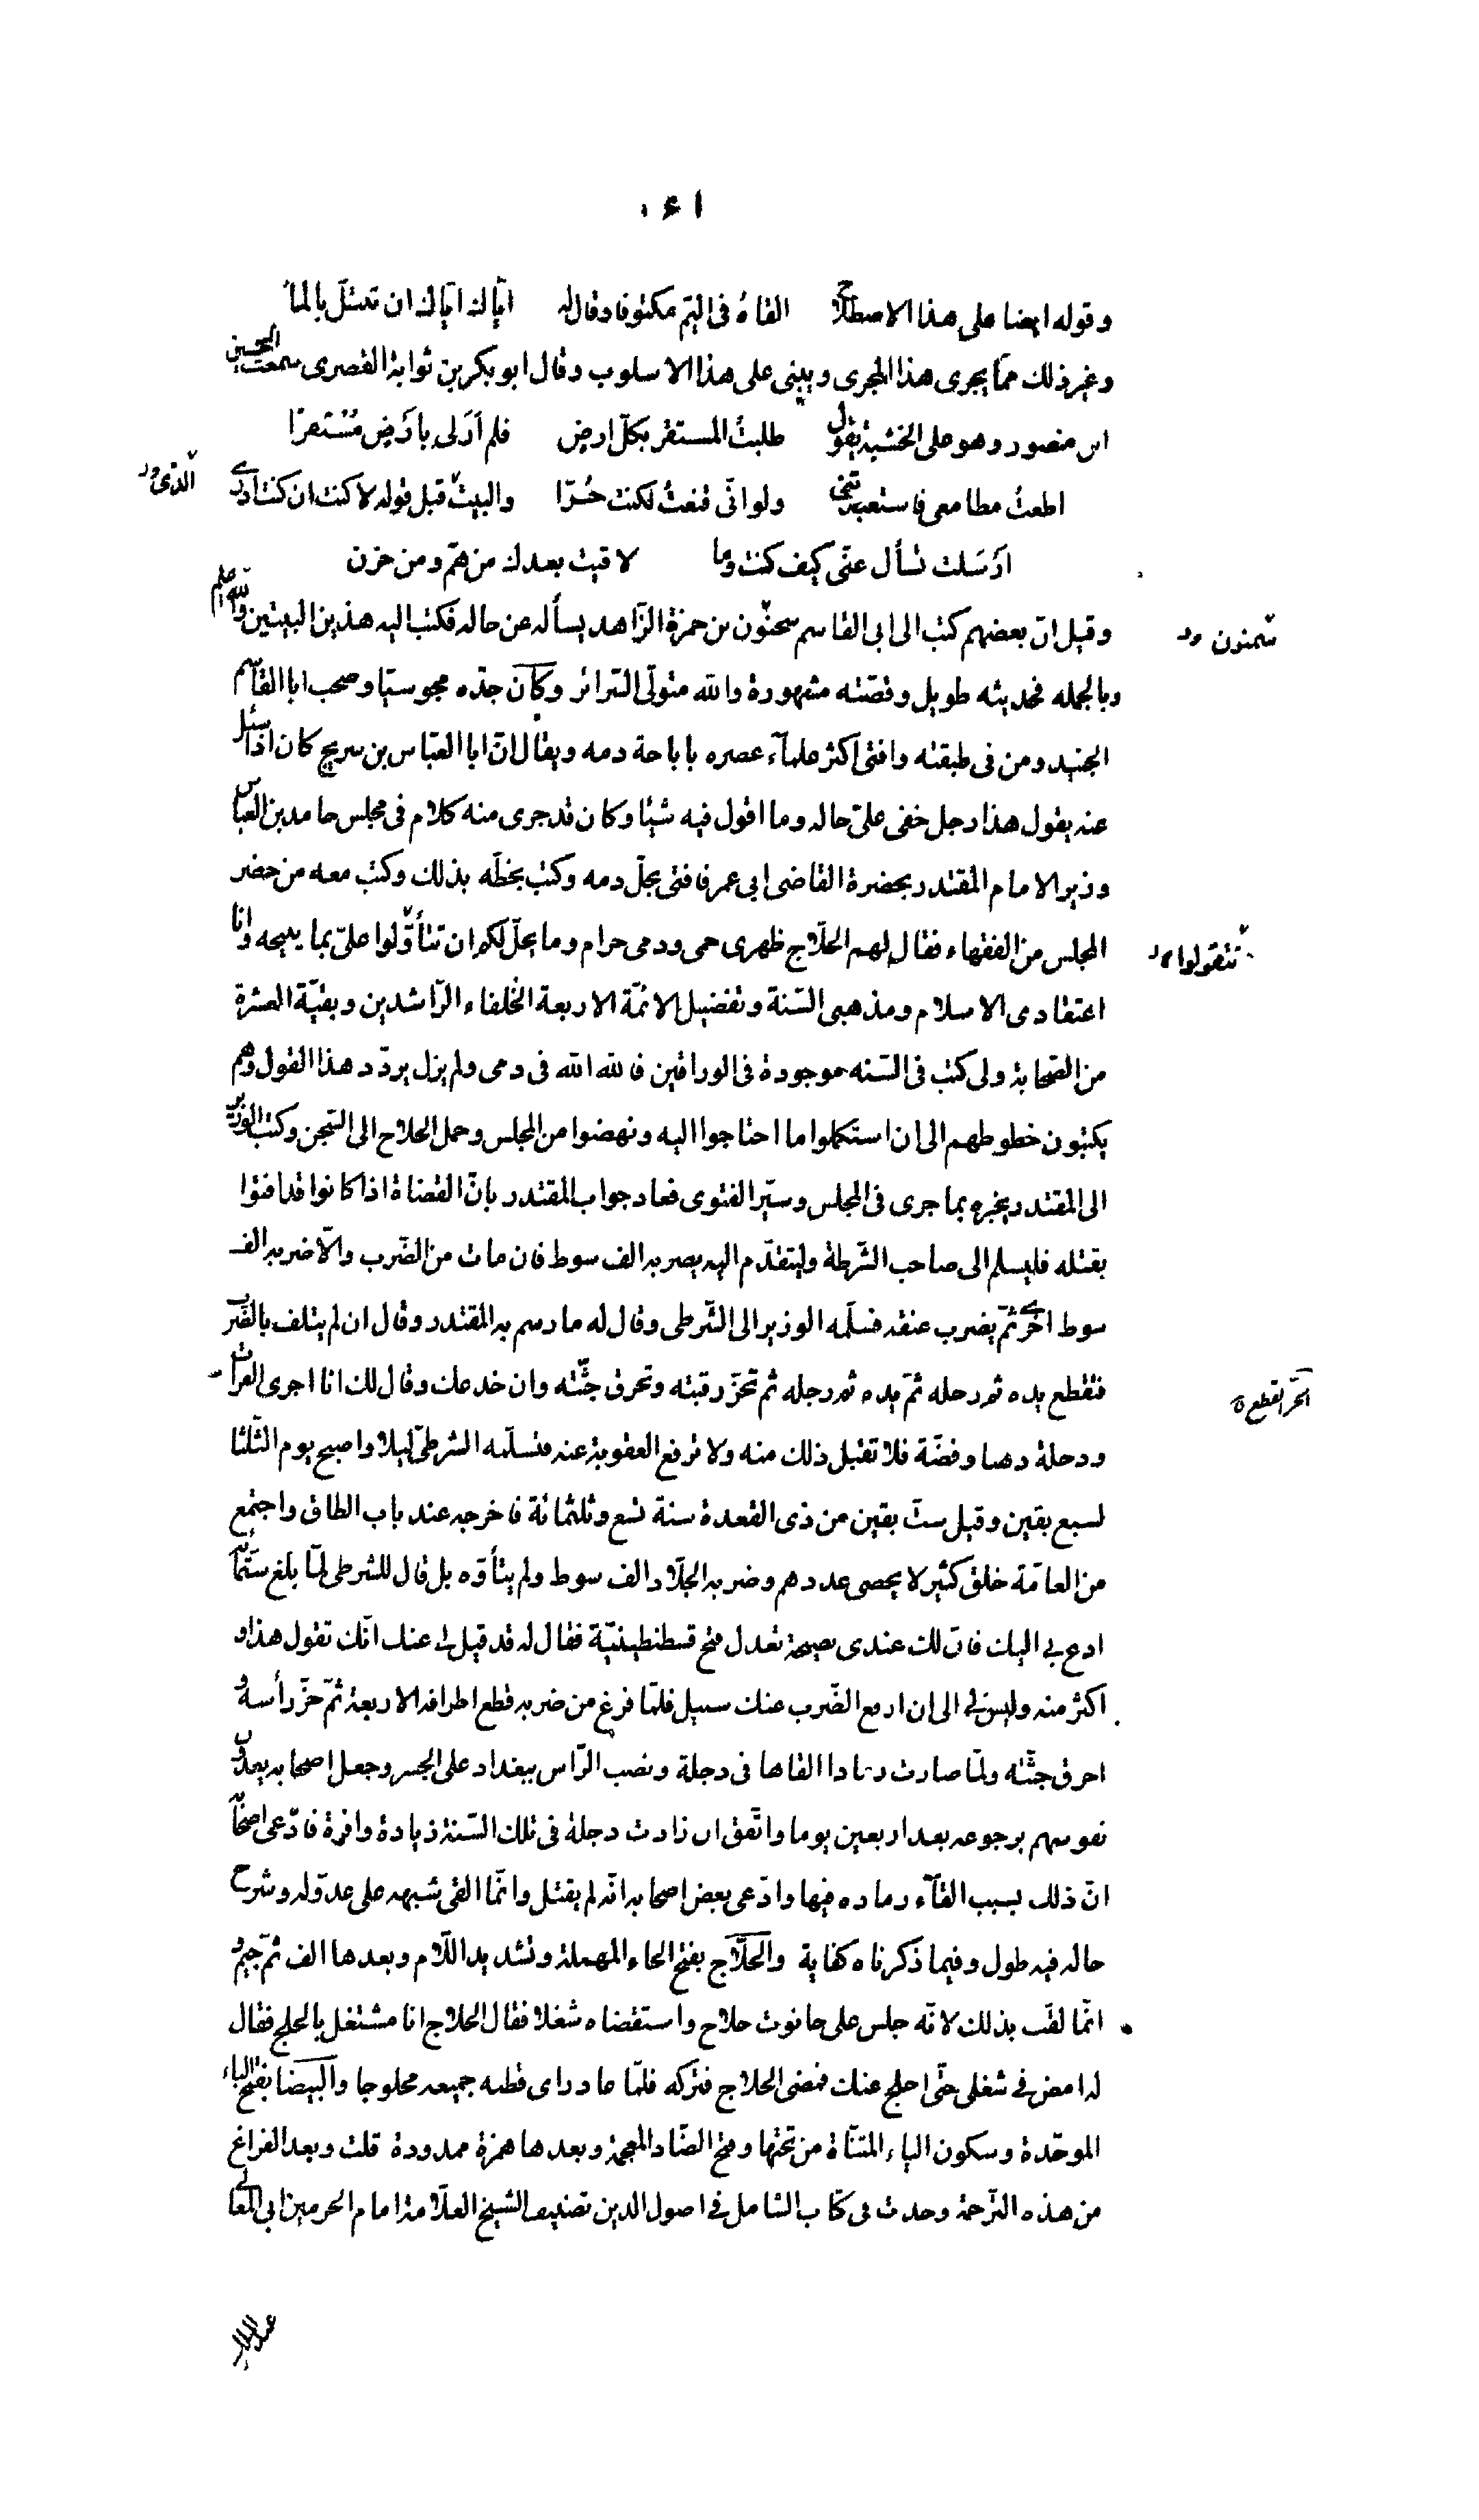 ١٤٠
وقوله ايضا على هذا الاصطلاح القاهُ فى اليمّ مكتوفا وقال له ايّاك ايّاك ان تبتلّ بالماءِ
وغير ذلك ممّا يجرى هذا المجرى ويبنى على هذا الاسلوب وقال ابو بكر بن ثوابة القصرى سمعت الحسين
ابن منصور وهو على الخشبة يقول طلبتُ المستقر بكلّ ارضٍ فلم اَرَ لى بِاَرَضٍ مُسْتقرّا
اطعتُ مطامعى فاستعبدتنى ولو انّى قنعتُ لكنت حُرّا والبيتُ قبل قوله لا كنت ان كنت ادرى
الّذى
اَرْسَلت تسأل عنّى كيف كنت وما لاقيت بعدك من همّ ومن حزن
وقيل انّ بعضهم كتب الى ابى القاسم سحنّون بن حمزة الزّاهد يسأله عن حاله فكتب اليه هذين البيتين والله اعلم
سمنون
وبالجمله فحديثه طويل وقصّته مشهورة والله متولّى السّرائر وكان جدّه مجوسيّا وصحب ابا القاسم
الجنيد ومن فى طبقته وافتى اكثر علمآء عصره باباحة دمه ويقال انّ ابا العبّاس بن سريج كان اذا سئل
عنه يقول هذا رجل خفى علىّ حاله وما اقول فيه شيئا وكان قد جرى منه كلام فى مجلس حامد بن العبّاس
وزير الامام المقتدر بحضرة القاضى ابى عمر فافتى بحلّ دمه وكتب بخطّه بذلك وكتب معه من حضر
المجلس من الفقهاء فقال لهم الحلّاج ظهرى حمى ودمى حرام وما يحلّ لكم ان تتأوّلوا علىّ بما يبيحه وانا
تتقولوا
اعتقادى الاسلام ومذهبى السّنة وتفضيل الائمّة الاربعة الخلفاء الرّاشدين وبقيّة العشرة
من الصّحابة ولى كتب فى السّنه موجودة فى الوراقين فالله الله فى دمى ولم يزل يردّد هذا القول وهم
يكتبون خطوطهم الى ان استكملوا ما احتاجوا اليه ونهضوا من المجلس وحمل الحلاج الى السّجن وكتب الوزير
الى المقتدر يخبره بما جرى فى المجلس وسيّر الفتوى فعاد جواب المقتدر بانّ القضاة اذا كانوا قد افتوا
بقتله فليسلم الى صاحب الشّرطة وليتقدّم اليه بضربه الف سوط فان مات من الضّرب والّا ضربه الف
سوط اخرى ثمّ يضرب عنقه فسلّمه الوزير الى الشّرطى وقال له ما رسم به المقتدر وقال ان لم يتلف بالضّرب
فتقطع يده ثم رجله ثمّ يده ثم رجله ثم تحزّ رقبته وتحرق جثّته وان خدعك وقال لك انا اجرى الفرات
ودجلة ذهبا وفضّة فلا تقبل ذلك منه ولا ترفع العقوبة عنه فتسلّمه الشرطىّ ليلا واصبح يوم الثّلثا
لسبع بقين وقيل ستّ بقين من ذى القعدة سنة تسع وثلثمائة فاخرجه عند باب الطاق واجتمع
من العامّة خلق كثير لا يحصى عددهم وضربه الجلّاد الف سوط ولم يتأوّه بل قال للشرطى لمّا بلغ ستّمائة
ادع بى اليك فانّ لك عندى نصيحة تعدل فتح قسطنطينيّة فقال له قد قيل لى عنك انّك تقول هذا و
اكثر منه وليس لى الى ان ارفع الضّرب عنك سبيل فلمّا فرغ من ضربه قطع اطرافه الاربعة ثمّ حزّ رأسه و
احرق جثّته ولمّا صارت رمادا القاها فى دجلة ونصب الرّاس ببغداد على الجسر وجعل اصحابه يعدون
نفوسهم برجوعه بعد اربعين يوما واتّفق ان زادت دجلة فى تلك السّنة زيادة وافرة فادّعى اصحابه
انّ ذلك بسبب القآء رماده فيها وادّعى بعض اصحابه انّه لم يقتل وانّما القى شبهه على عدوّ له وشرح
حاله فيه طول وفيما ذكرناه كفاية والحلّاج بفتح الحاء المهملة وتشديد اللّام وبعدها الف ثمّ جيم و
انّما لقّب بذلك لانّه جلس على حانوت حلاج واستقضاه شغلا فقال الحلاج انا مشتغل بالحلج فقال
له امض فى شغلى حتّى احلج عنك فمضى الحلاج فتركه فلمّا عاد راى قطنه جميعه محلوجا والبيضا بفتح الباء
الموحّدة وسكون الياء المثنّاة من تحتها وفتح الضّاد المعجمة وبعدها همزة ممدودة قلت وبعد الفراغ
من هذه التّرجمة وجدت فى كتاب الشامل فى اصول الدين تصنيف الشيخ العلّامة امام الحرمين ابى المعالى